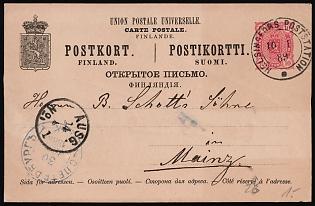 UNION POSTALE UNIVERSELLE.
CARTE POSTALE
FINLANDE
POSTKORT. POSTIKORTTI.
FINLAND. SUOMI.
ОТКРЫТОЕ ПИСЬМО.
ФИНЛЯНДІЯ.
HELSINGFORS POSTSTATION
10 I
Herren B. Schott's Söhne
in
Mainz
AUSG
1
Sida för adressen. — Osoitteen puoli. — Сторона для адреса. — Côté réservé à l'adresse.